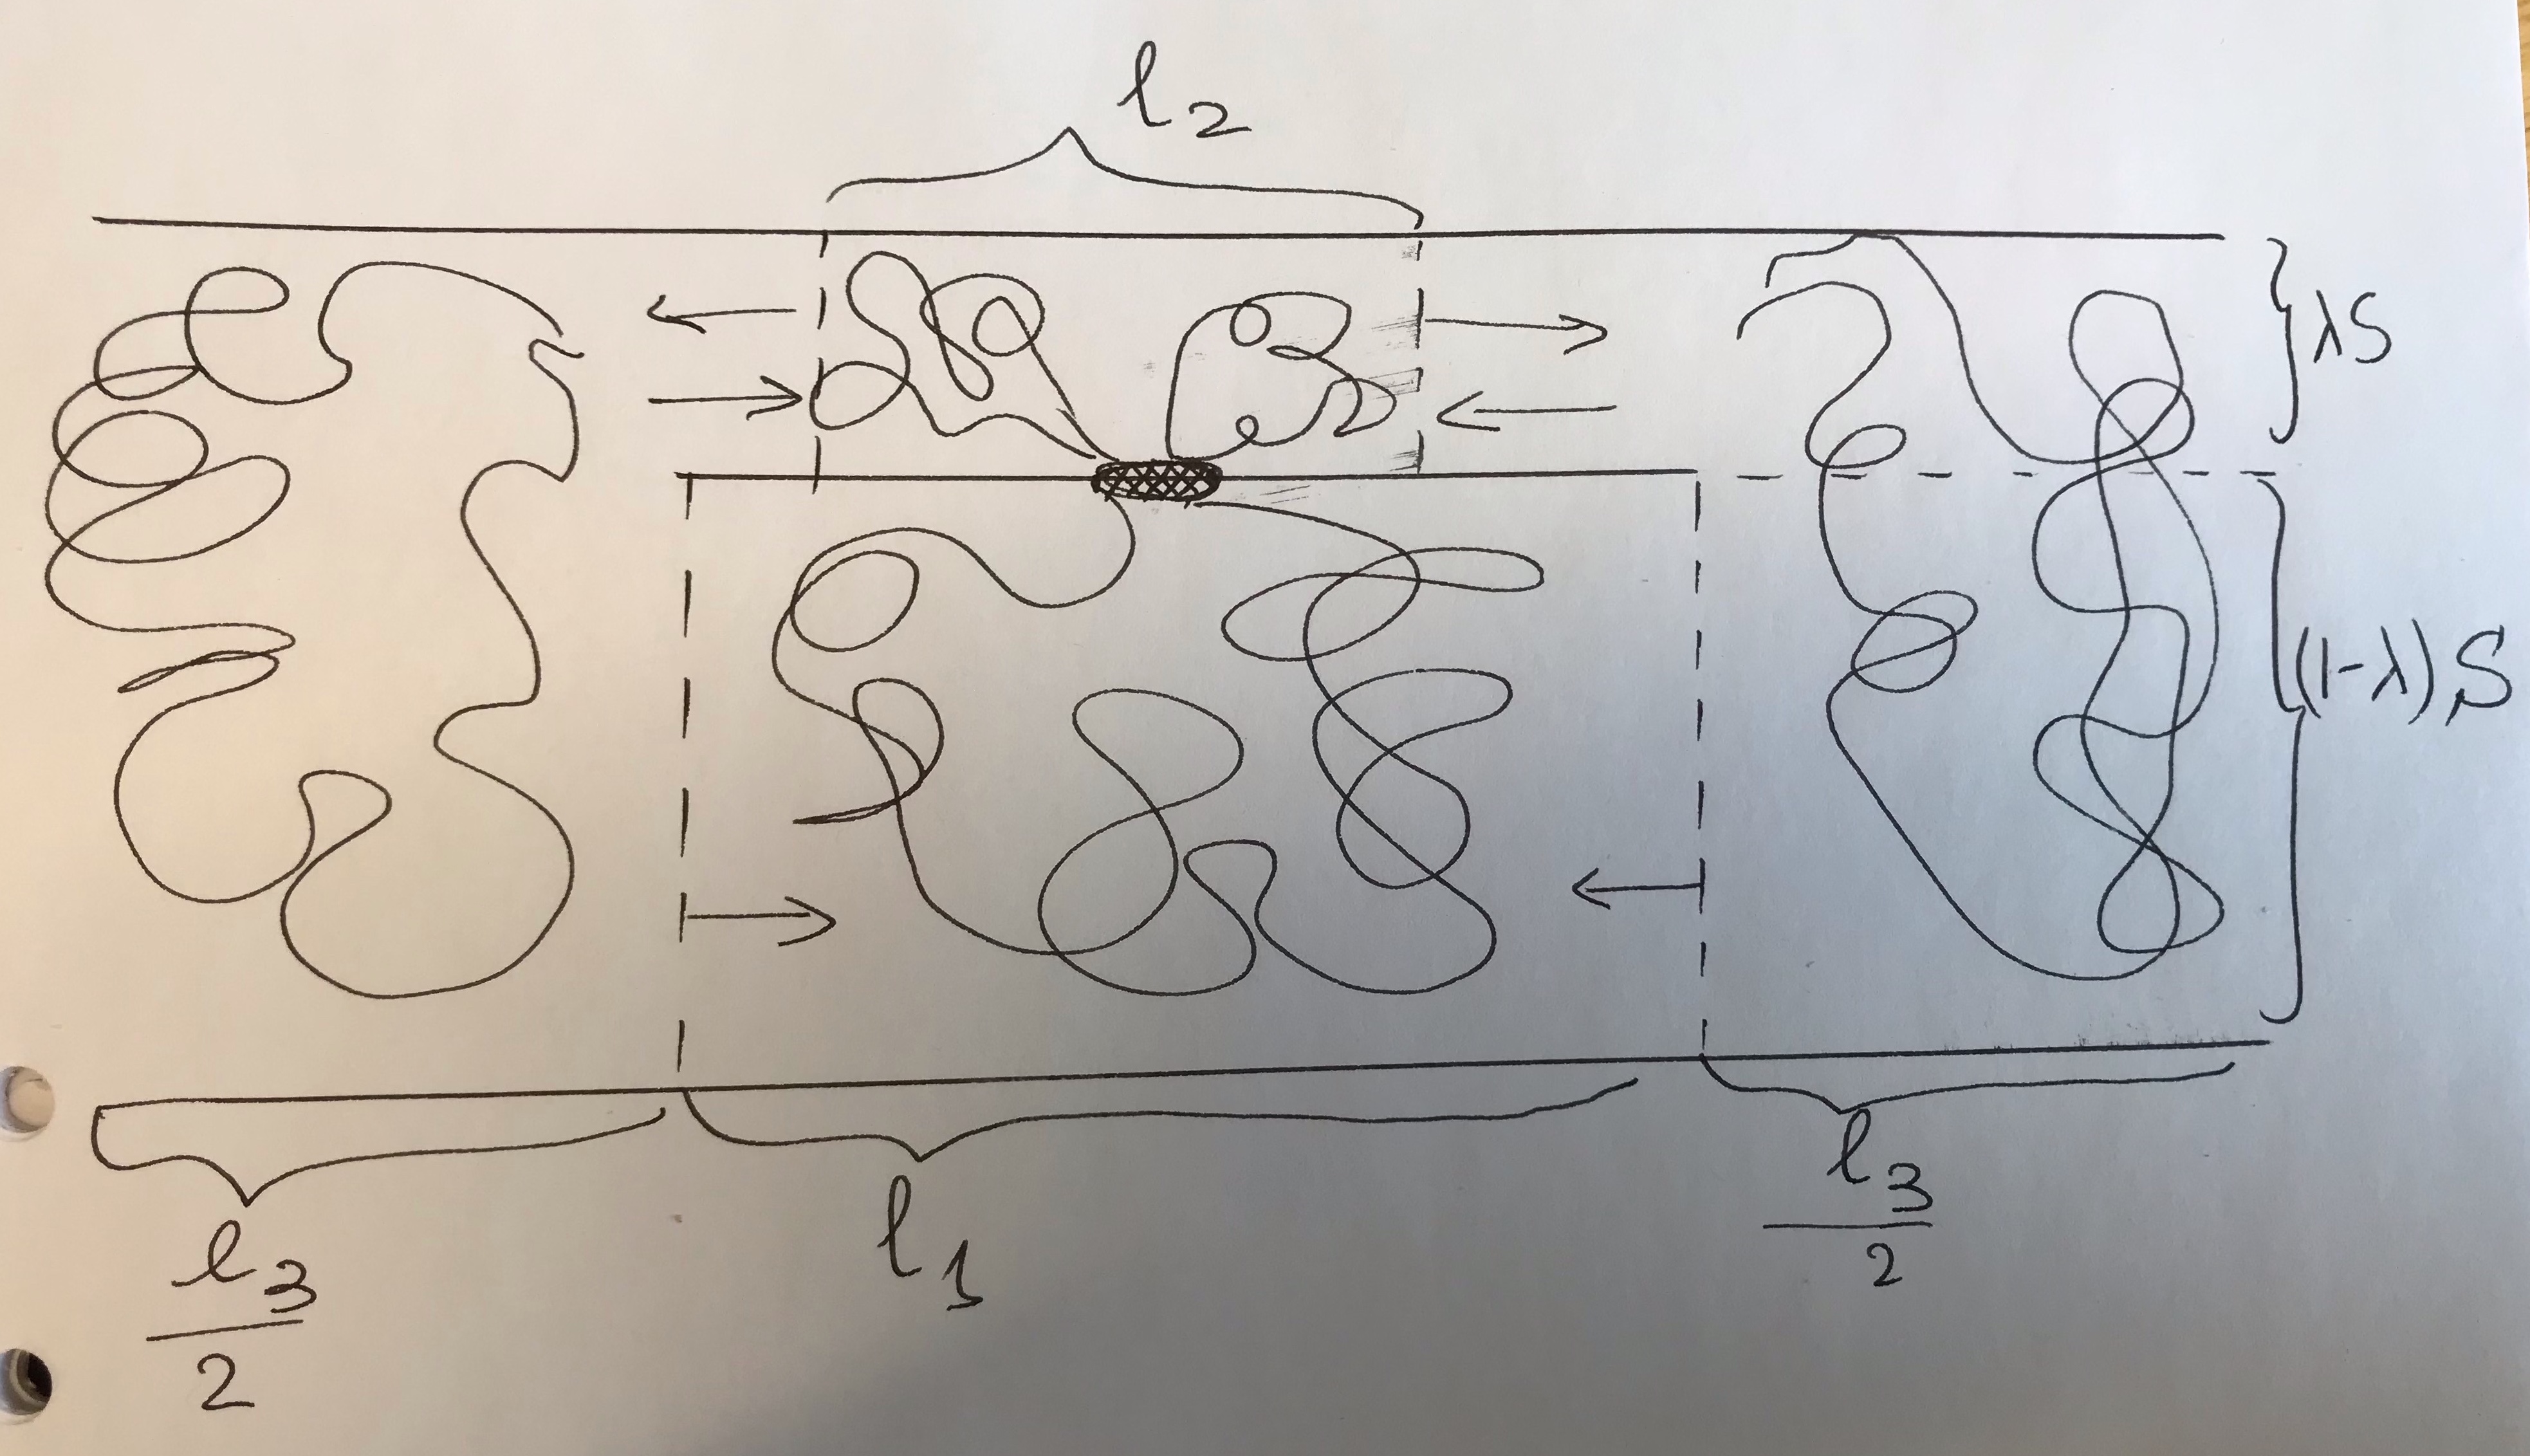 l₂
λS
(1-λ)S
l₃/2
l₁
l₃/2